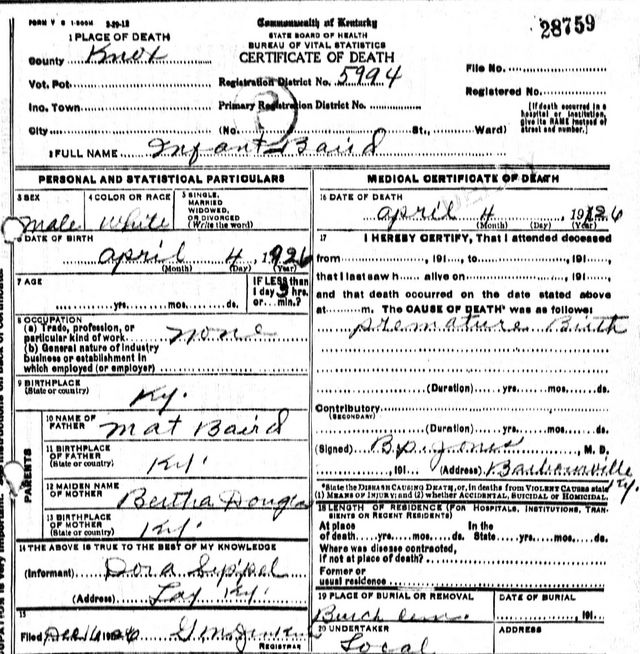 FORM V S 1-500M 3-29-12
Commonwealth of Kentucky
28759
1 PLACE OF DEATH
STATE BOARD OF HEALTH
BUREAU OF VITAL STATISTICS
County Knox
CERTIFICATE OF DEATH
File No.
Vot. Pct.
Registration District No. 5994
Registered No.
Inc. Town
Primary Registration District No.
[If death occurred in a hospital or institution, give its NAME instead of street and number.]
City (No. St., Ward)
2 FULL NAME Infant Baird
PERSONAL AND STATISTICAL PARTICULARS
MEDICAL CERTIFICATE OF DEATH
3 SEX
male
4 COLOR OR RACE
White
5 SINGLE, MARRIED WIDOWED, OR DIVORCED (Write the word)
16 DATE OF DEATH
april 4 1926
(Month) (Day) (Year)
6 DATE OF BIRTH
april 4, 1926
(Month) (Day) (Year)
17 I HEREBY CERTIFY, That I attended deceased
from , 191 , to , 191 ,
that I last saw h alive on , 191 ,
7 AGE
yrs. mos. ds.
IF LESS than
1 day 3 hrs.
or min.?
and that death occurred on the date stated above
at m. The CAUSE OF DEATH* was as follows:
premature Birth
8 OCCUPATION
(a) Trade, profession, or
particular kind of work none
(b) General nature of industry
business or establishment in
which employed (or employer)
(Duration) yrs. mos. ds.
9 BIRTHPLACE
(State or country) Ky.
Contributory
(SECONDARY)
(Duration) yrs. mos. ds.
PARENTS
10 NAME OF
FATHER Mat Baird
11 BIRTHPLACE
OF FATHER
(State or country) Ky.
(Signed) Jones, M. D.
, 191 (Address) Barbourville Ky.
12 MAIDEN NAME
OF MOTHER Bertha Douglas
*State the DISEASE CAUSING DEATH, or, in deaths from VIOLENT CAUSES state
(1) MEANS OF INJURY; and (2) whether ACCIDENTAL, SUICIDAL or HOMICIDAL.
13 BIRTHPLACE
OF MOTHER
(State or country) Ky.
18 LENGTH OF RESIDENCE (FOR HOSPITALS, INSTITUTIONS, TRANSIENTS OR RECENT RESIDENTS)
At place In the
of death yrs. mos. ds. State yrs. mos. ds.
Where was disease contracted,
if not at place of death?
Former or
usual residence
14 THE ABOVE IS TRUE TO THE BEST OF MY KNOWLEDGE
(Informant) Dora Sippel
(Address) Lay Ky.
19 PLACE OF BURIAL OR REMOVAL
DATE OF BURIAL
Burch Cem. , 191
15
Filed Dec 16 1926
REGISTRAR
20 UNDERTAKER
Local
ADDRESS